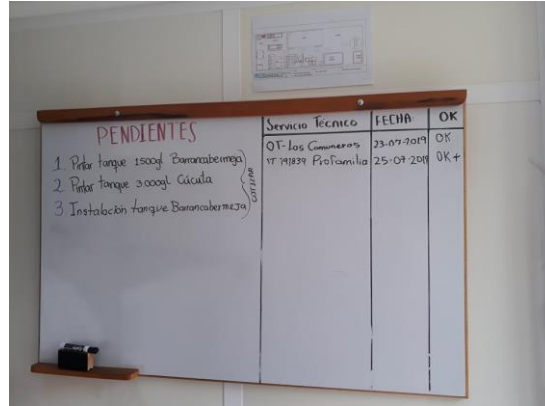 PENDIENTES
1. Pintar tanque 1500gl Barrancabermeja
2. Pintar tanque 3000gl Cúcuta
3. Instalación tanque Barrancabermeja
COTIZAR
Servicio Técnico FECHA OK
OT-Los Comuneros 23-07-2019 OK
Profamilia 25-07-2019 OK+